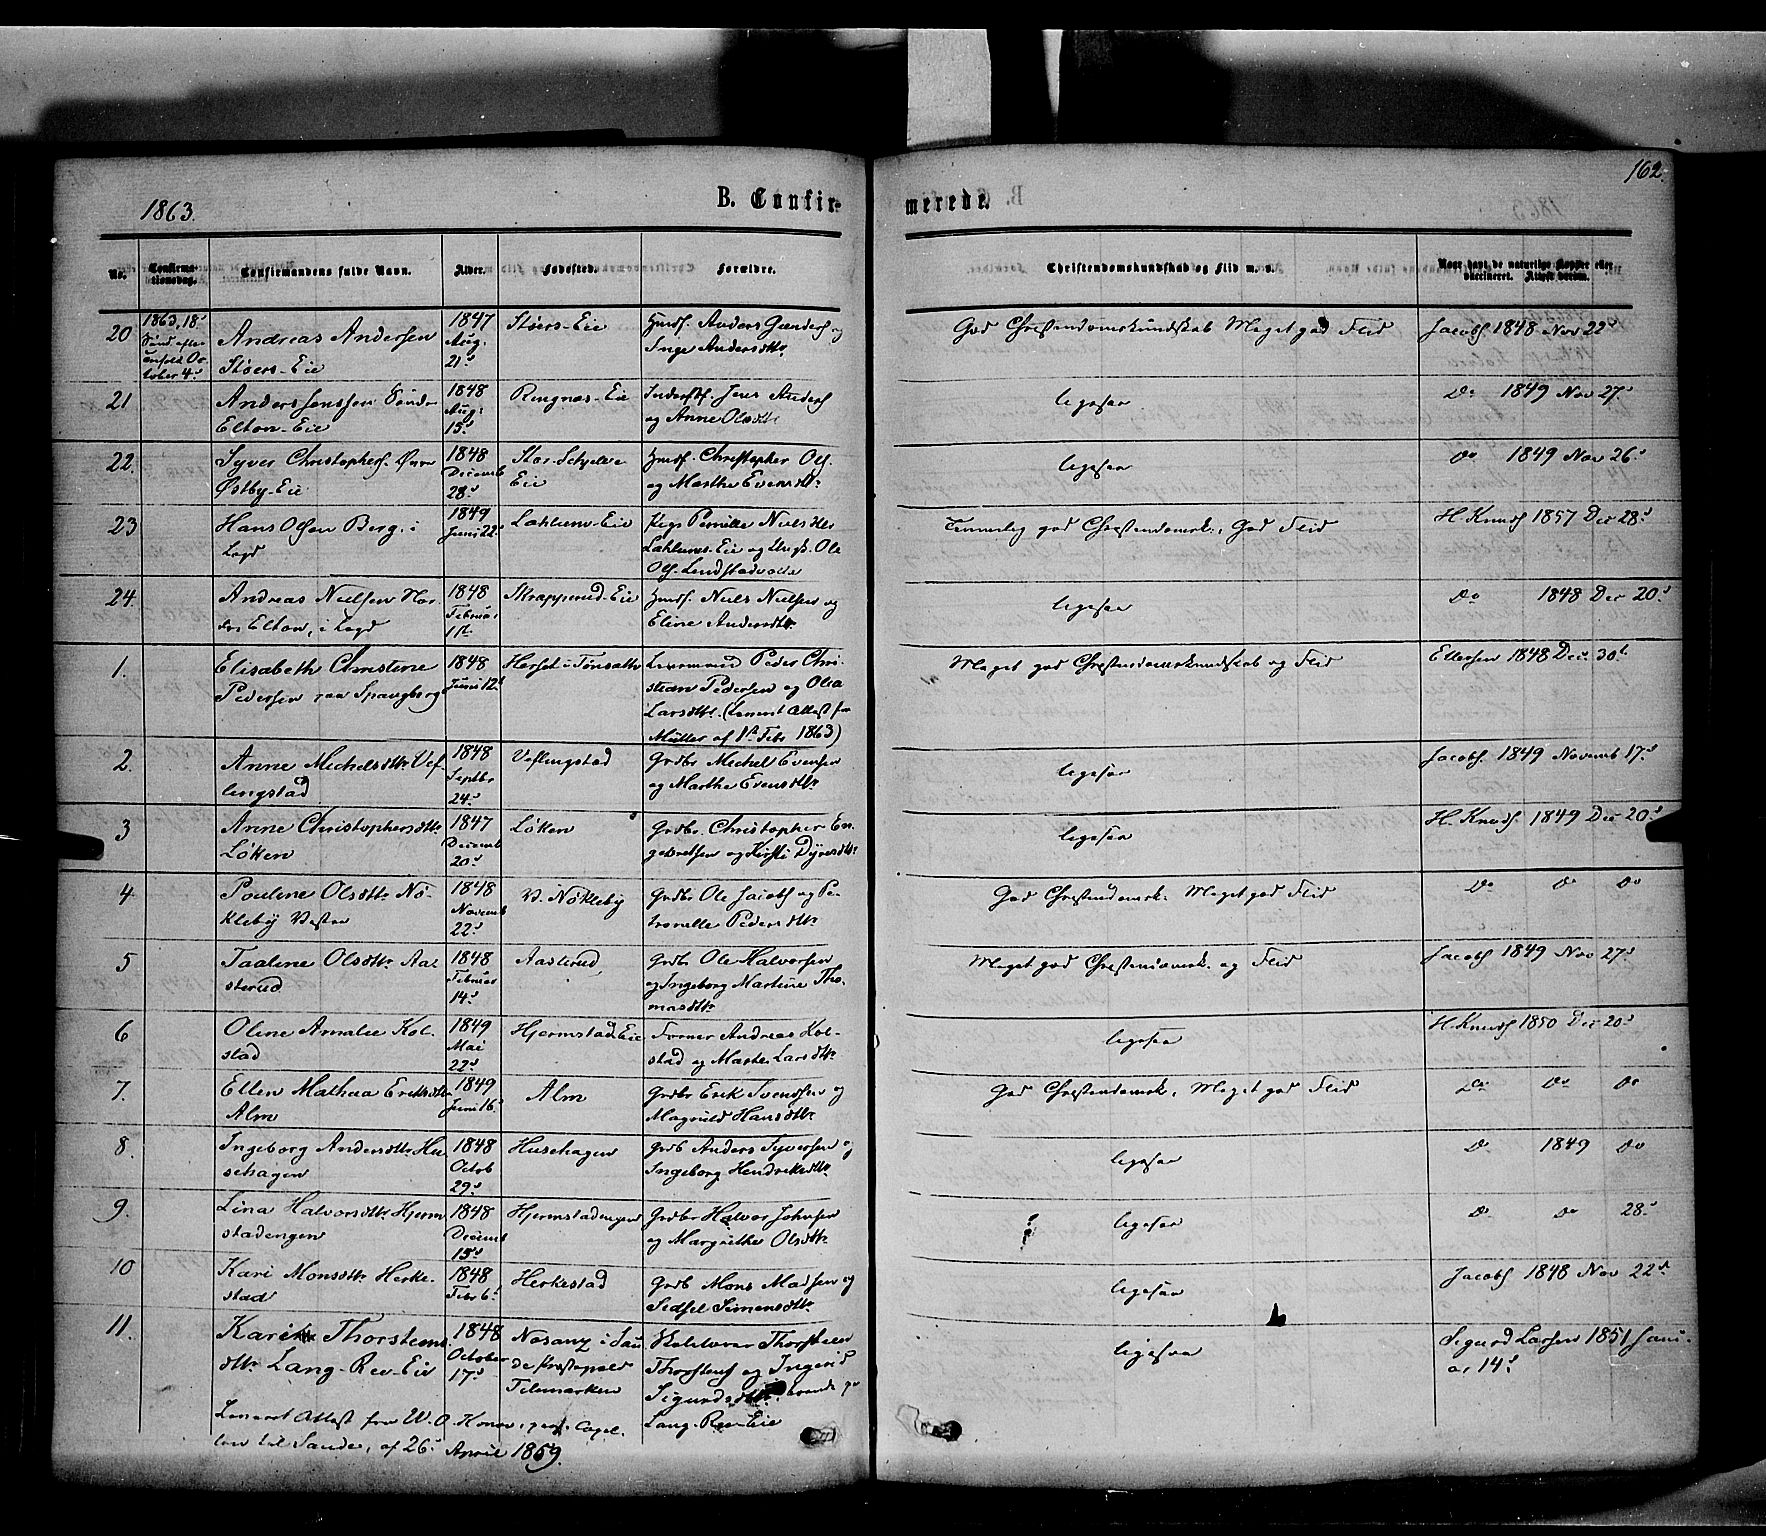 162.
1863.
B. Confirmerede.
No. Confirmationsdag. Confirmandens fulde Navn. Alder. Fødested. Forældre. Christendomskundskab og Flid m. v. Naar havt de naturlige Kopper eller vaccineret. Attest derom.
20 1863, 18d Sønd. efter Octo-
tober 4d
Andreas Andersen
Støers-Eie
1847
Aug:
21d
Støers-Eie
Anders og
Inge Andersdtr
God Christendomskundskab Meget god Flid
Jacobs. 1848 Nov 22d
21
Anders Jenssen
Elton-Eie
1848
Aug:
15d
Ringnæs-Eie
Jens Anders.
og Anne Olsdtr
ligesaa
Do 1849 Nov 27d
22
Syver Christophers. Øvre
Østby-Eie
1848
Decemb
28d
Eie
Christopher Ols.
og Marthe Evensdtr
ligesaa
Do 1849 Nov 26d
23
Hans Olsen Berg, i
Legd
1849
Juni 22d
Læhlums-Eie
Pige Pernille Nielsdtr
Læhlums-Eie og Ungk. Ole
Ols.
Temmelig god Christendomsk., God Flid
H. Knuds. 1857 Dec 28d
24.
Andreas Nielsen Nor-
dre Elton, i Legd
1848
Februar
11te
Skrapperud-Eie
Niels Nielsen og
Eline Andersdtr
ligesaa
Do 1848 Dec 20d
1.
Elisabeth Christine
Pedersen paa Spangberg
1848
Juni 12d
Herset i Tønsæth
Peder Chri-
stian Pedersen og Olea
Larsdtr. (Leveret Attest fra
Müller af 1st Febr 1863)
Meget god Christendomskundskab og Flid
Ellersen 1848 Dec. 30d
2.
Anne Michelsdtr Vef-
lingstad
1848
Septbr
24d
Veflingstad
Grdbr. Michel Evensen
og Marthe Evensdtr
ligesaa
Jacobs. 1849 Novemb 17d
3
Anne Christophersdtr
Løken
1847
Decemb
20d
Løken
Grdbr. Christopher En-
gebretsen og Kirsti Dyresdtr
ligesaa
H. Knuds 1849 Dec 20d
4
Pauline Olsdtr Nø-
kleby Vestre
1848
Novemb
22d
V. Nøkleby
Grdbr Ole Jacobs og Pe-
tronelle Pedersdtr
God Christendomsk. Meget god Flid
Do Do Do
5
Taaline Olsdtr Aa-
sterud
1848
Februar
14d
Aasterud
Grdbr Ole Halvorsen
og Ingeborg Martine Tho-
masdtr
Meget god Christendomsk. og Flid
Jacobs 1849 Nov 27d
6
Oline Amalie Kol-
stad
1849
Mai
22d
Hjermstad-Eie
Former Andreas Kol-
stad og Marte Larsdtr
ligesaa
H. Knuds 1850 Dec 20d
7.
Ellen Mathea Eriksdtr
Alm
1849
Juni 16d
Alm
Grdbr Erik Svendsen og
Magnild Hansdtr
God Christendomsk. Meget god Flid
Do Do Do
8.
Ingeborg Andersdtr Hu-
sehagen
1848
Octob
29d
Husehagen
Grdb Anders Syversen og
Ingeborg Hendriksdtr
ligesaa
Do 1849 Do
9.
Lina Halvorsdtr Hjerm-
stadengen
1848
Decemb
15d
Hjermstadengen
Grdbr Halvor Johnsen
og Margrethe Olsdtr
ligesaa
Do Do 28d
10
Kari Monsdtr Herke-
stad
1848
Febr 6d
Herkestad
Grdb Mons Madsen og
Sidsel Simensdtr
ligesaa
Jacobs 1848 Nov 22d
11.
Kari Thorstens-
dtr Lang-Rev-Eie
1848
October
17d
i Sau-
de Præstegjeld
Telemarken
Skolelærer Thorsten
Thorstens og Ingerid
Sigurdsdtr. boende paa
Lang-Rev-Eie
ligesaa
Sigurd Larsen 1851 Janu-
ar 14d
Leveret Attest fra W. O. pers. Capel-
lan til Sande, af 26d April 1859.